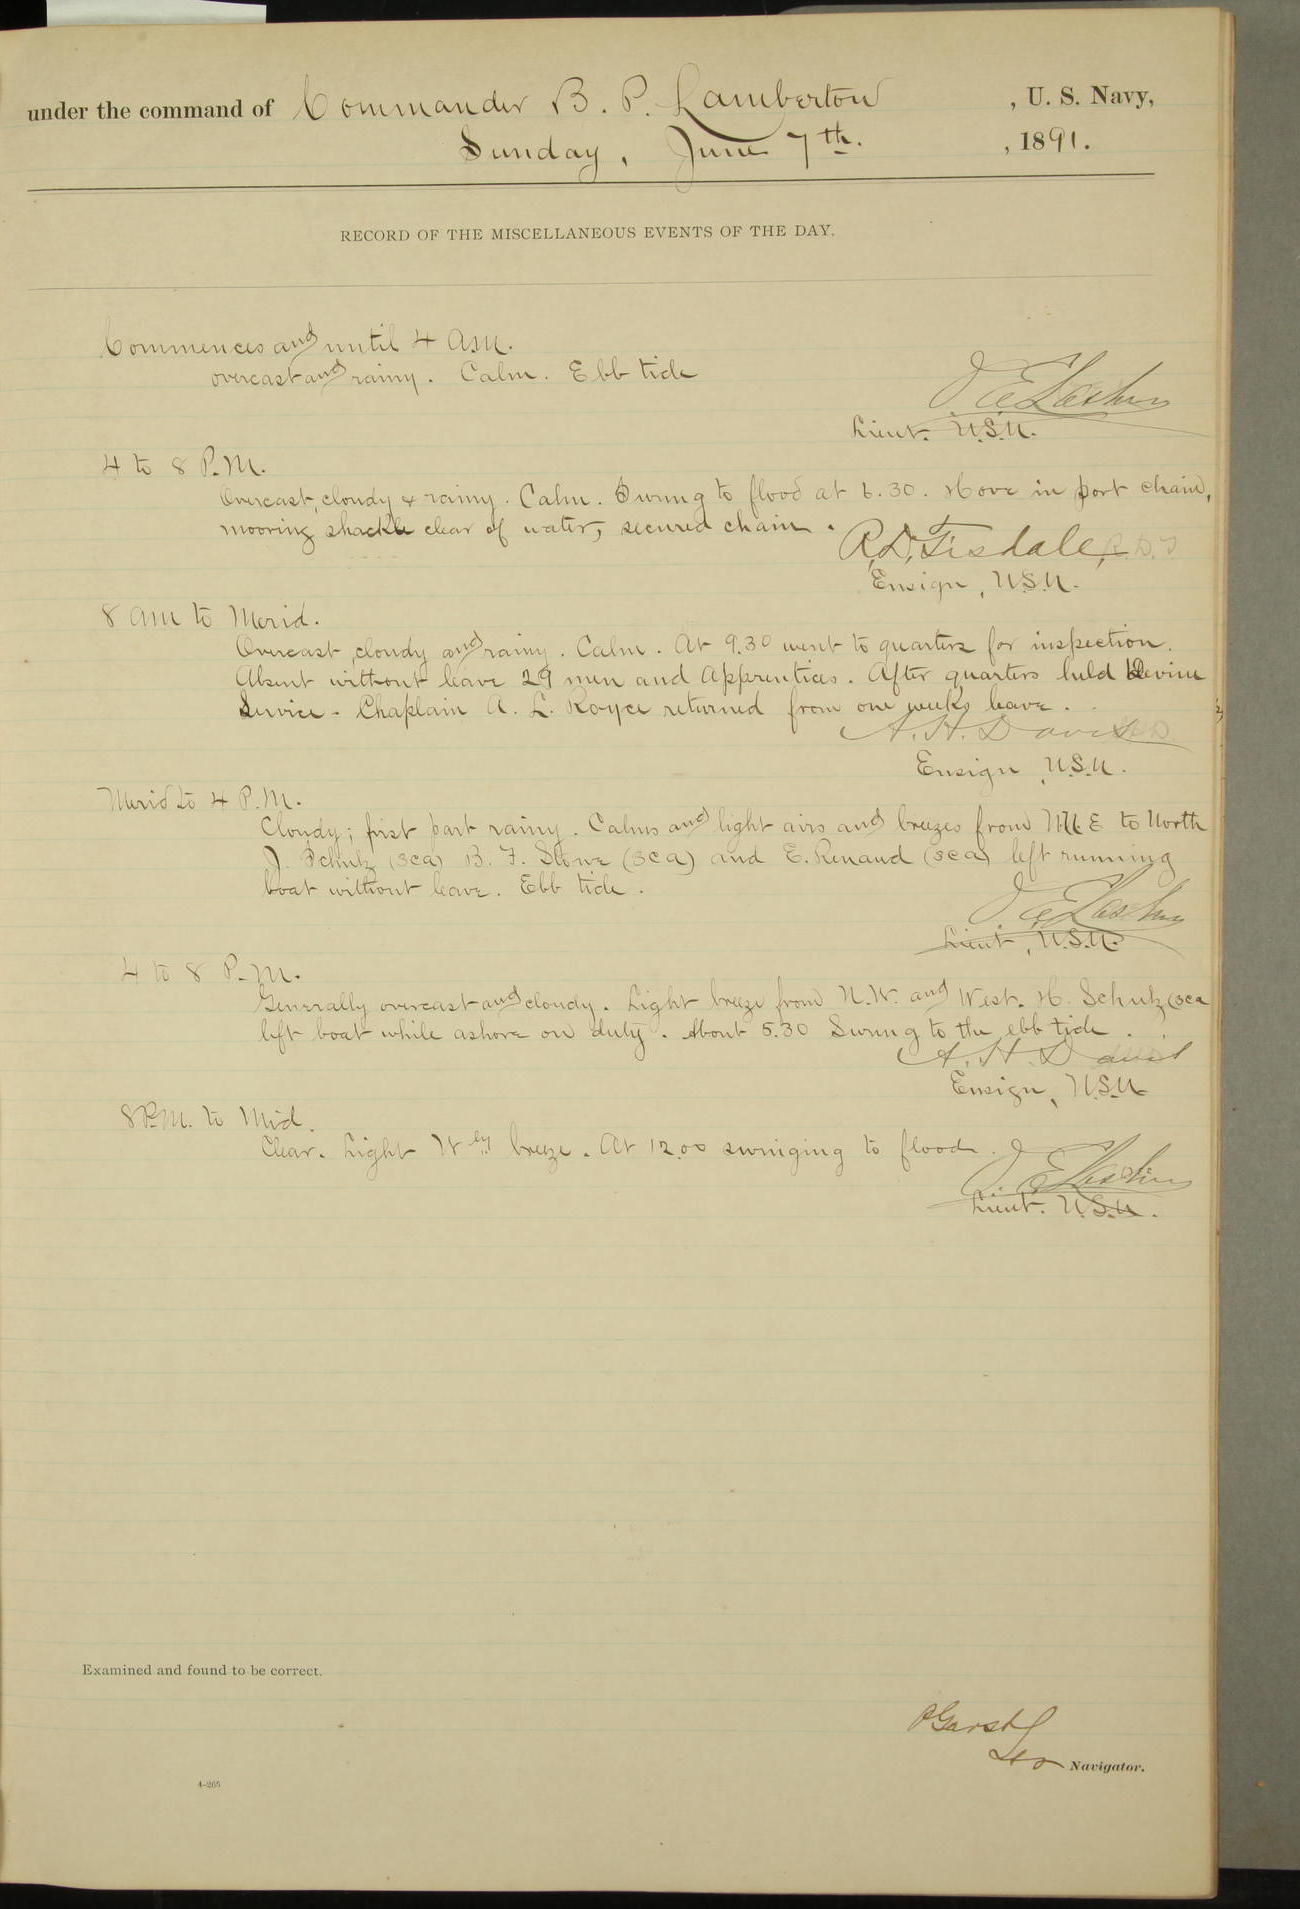 under the command of Commander B. P. Lamberton, U. S. Navy,
Sunday, June 7th., 1891.
RECORD OF THE MISCELLANEOUS EVENTS OF THE DAY.
Commences and until 4 A.M.
overcast and rainy. Calm. Ebb tide
Lieut. U.S.N.
4 to 8 P.M.
Overcast, cloudy & rainy. Calm. Swung to flood at 6.30. Hove in port chain,
mooring shackle clear of water, secured chain.
R.D. Tisdale, R.D.T
Ensign, U.S.N.
8 am to Merid.
Overcast, cloudy and rainy. Calm. At 9.30 went to quarters for inspection.
Absent without leave 29 men and Apprentices. After quarters held Devine
Service - Chaplain A. L. Royce returned from one weeks leave.
A. H. Davis
Ensign, U.S.N.
Merid to 4 P.M.
Cloudy; first part rainy. Calms and light airs and breezes from NNE to North
J. Schutz (sea) B. F. Stowe (sea) and E. Renaud (sea) left running
boat without leave. Ebb tide.
Lieut, U.S.N.
4 to 8 P.M.
Generally overcast and cloudy. Light breeze from N.W. and West. H. Schutz (sea
left boat while ashore on duty. About 5.30 Swung to the ebb tide.
A. H. Davis
Ensign, U.S.N
8 P.M. to Mid.
Clear. Light W'ly breeze. At 12.00 swinging to flood.
Lieut. U.S.N.
Examined and found to be correct.
Navigator.
4-265